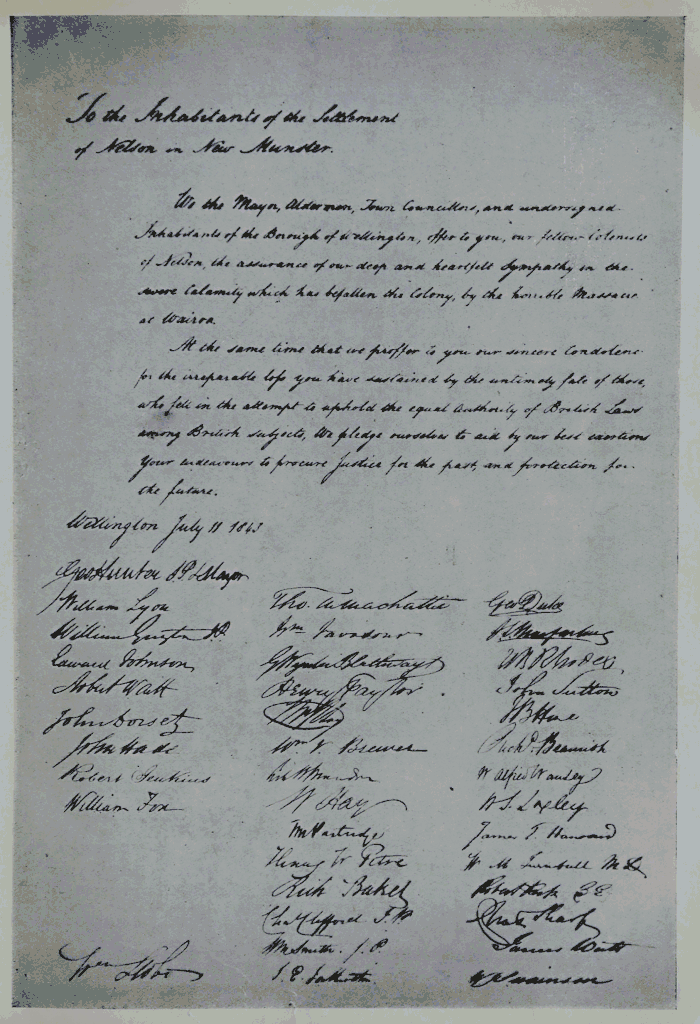 To the Inhabitants of the Settlement
of Nelson in New Munster.
We the Mayor, Aldermen, Town Councillors, and undersigned
Inhabitants of the Borough of Wellington, offer to you, our fellow Colonists
of Nelson, the assurance of our deep and heartfelt Sympathy in the
severe Calamity which has befallen the Colony, by the horrible Massacre
at Wairoa.
At the same time that we proffer to you our sincere Condolence
for the irreparable loss you have sustained by the untimely fate of those,
who fell in the attempt to uphold the equal Authority of British Laws
among British subjects, We pledge ourselves to aid by our best exertions
Your endeavours to procure Justice for the past, and protection for
the future.
Wellington July 11 1843
Geo Hunter J.P. & Mayor
William Lyon
William Guyton J.P.
Edward Johnson
Robert Watt
John Dorset
John Wade
Robert Jenkins
William Fox
Wm
Tho.
Wm
Henry Taylor
Wm V. Brewer
W Hay
Wm Partridge
Henry W Petre
Rich Baker
Cha Clifford J.P.
Wm Smith J.P.
J. E.
Geo Duke
W B Rhodes
John Sutton
Richd. Beamish
W Alfred Wansey
W. S. Loxley
James T. Hansard
W M Turnbull
Robert Park C.E.
Chas Sharp
James Watt
W Swainson